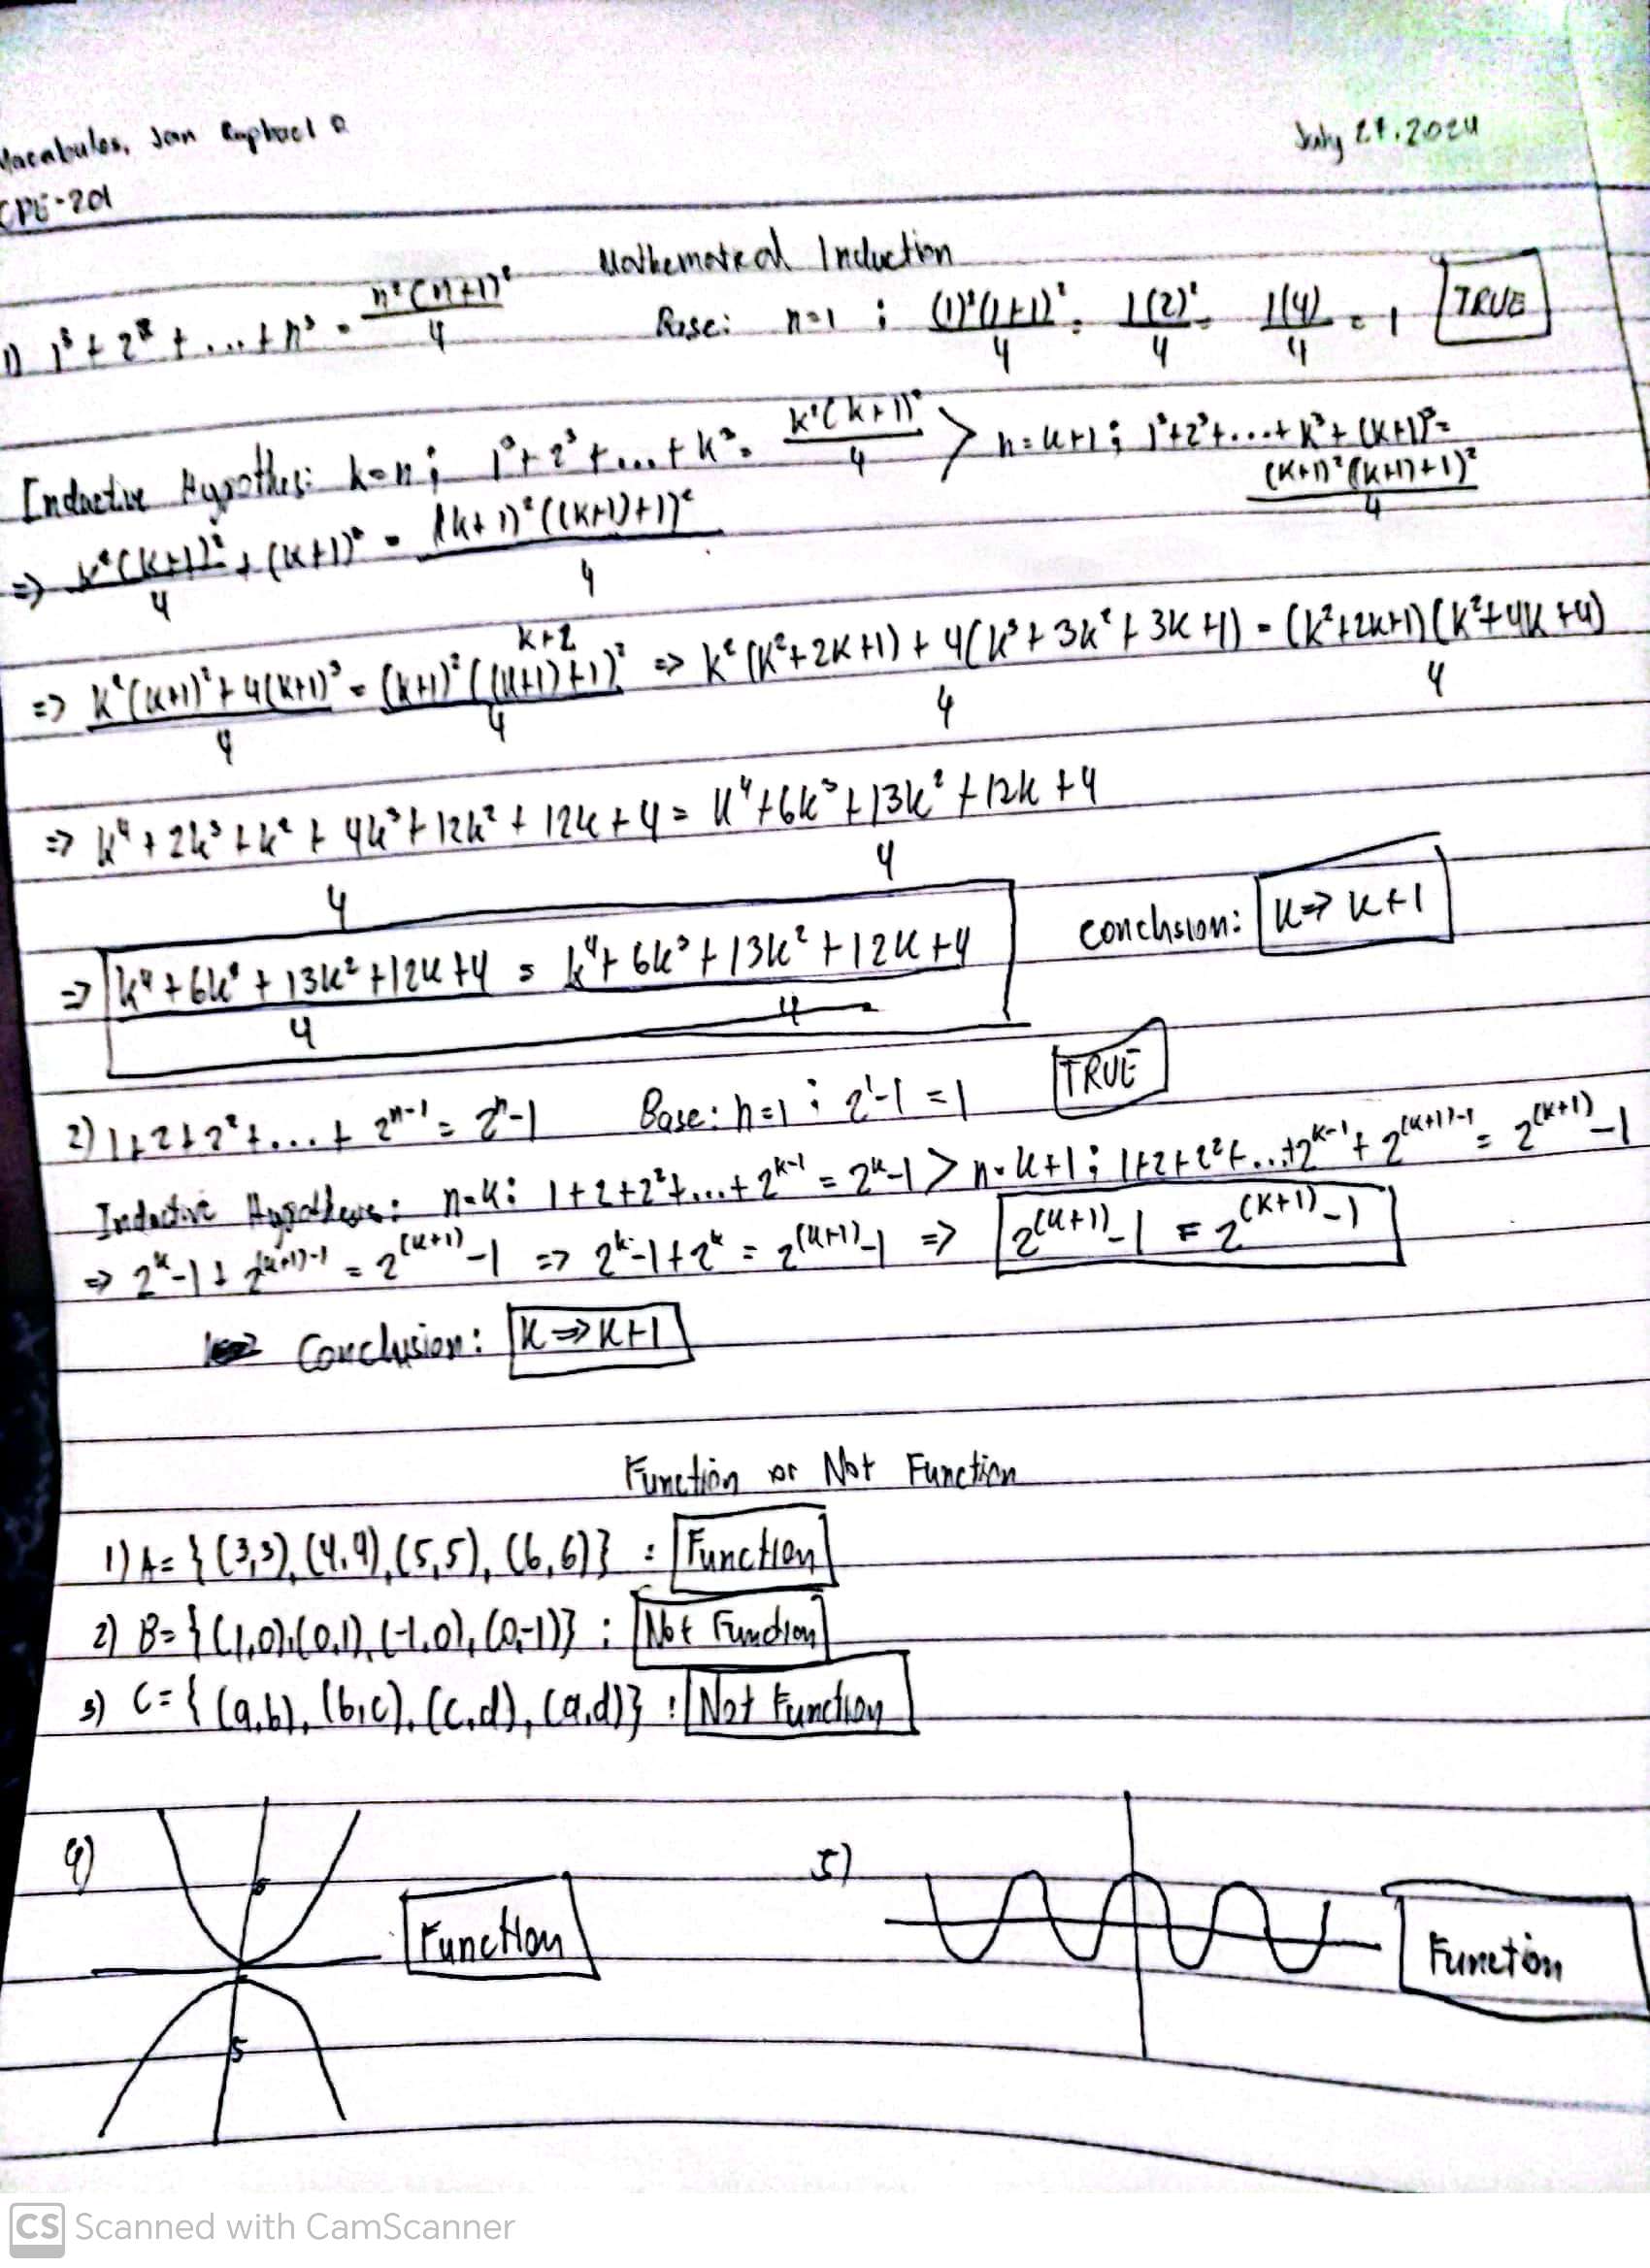 Macabulos, Jan Raphael R
July 27, 2024
CPE-201
Mathematical Induction
1) 1³ + 2³ + ... + n³ = n²(n+1)²/4 Base: n=1 ; (1)²(1+1)²/4 = 1(2)²/4 = 1(4)/4 = 1 TRUE
Inductive Hypothes: k=n ; 1³+2³+...+k³ = k²(k+1)²/4 > n=k+1 ; 1³+2³+...+k³+(k+1)³=
(k+1)²((k+1)+1)²/4
=> k²(k+1)²/4 + (k+1)³ = (k+1)²((k+1)+1)²/4
k+2
=> k²(k+1)²+4(k+1)³/4 = (k+1)²((k+1)+1)²/4 => k²(k²+2k+1)+4(k³+3k²+3k+1)/4 = (k²+2k+1)(k²+4k+4)/4
=> k⁴+2k³+k²+4k³+12k²+12k+4/4 = k⁴+6k³+13k²+12k+4/4
=> k⁴+6k³+13k²+12k+4/4 = k⁴+6k³+13k²+12k+4/4 conclsion: k=>k+1
2) 1+2+2²+...+2ⁿ⁻¹ = 2ⁿ-1 Base: n=1 ; 2¹-1 = 1 TRUE
Inductive Hypothesis: n=k: 1+2+2²+...+2^(k-1) = 2^k-1 > n=k+1 ; 1+2+2²+...+2^(k-1)+2^((k+1)-1) = 2^(k+1)-1
=> 2^k-1+2^((k+1)-1) = 2^(k+1)-1 => 2^k-1+2^k = 2^(k+1)-1 => 2^(k+1)-1 = 2^(k+1)-1
Conclusion: k=>k+1
Function or Not Function
1) A={(3,3),(4,4),(5,5),(6,6)} : Function
2) B={(1,0),(0,1),(-1,0),(0,-1)} : Not Function
3) C={(a,b),(b,c),(c,d),(a,d)} : Not Function
4) Function
5) Function
5
CS Scanned with CamScanner